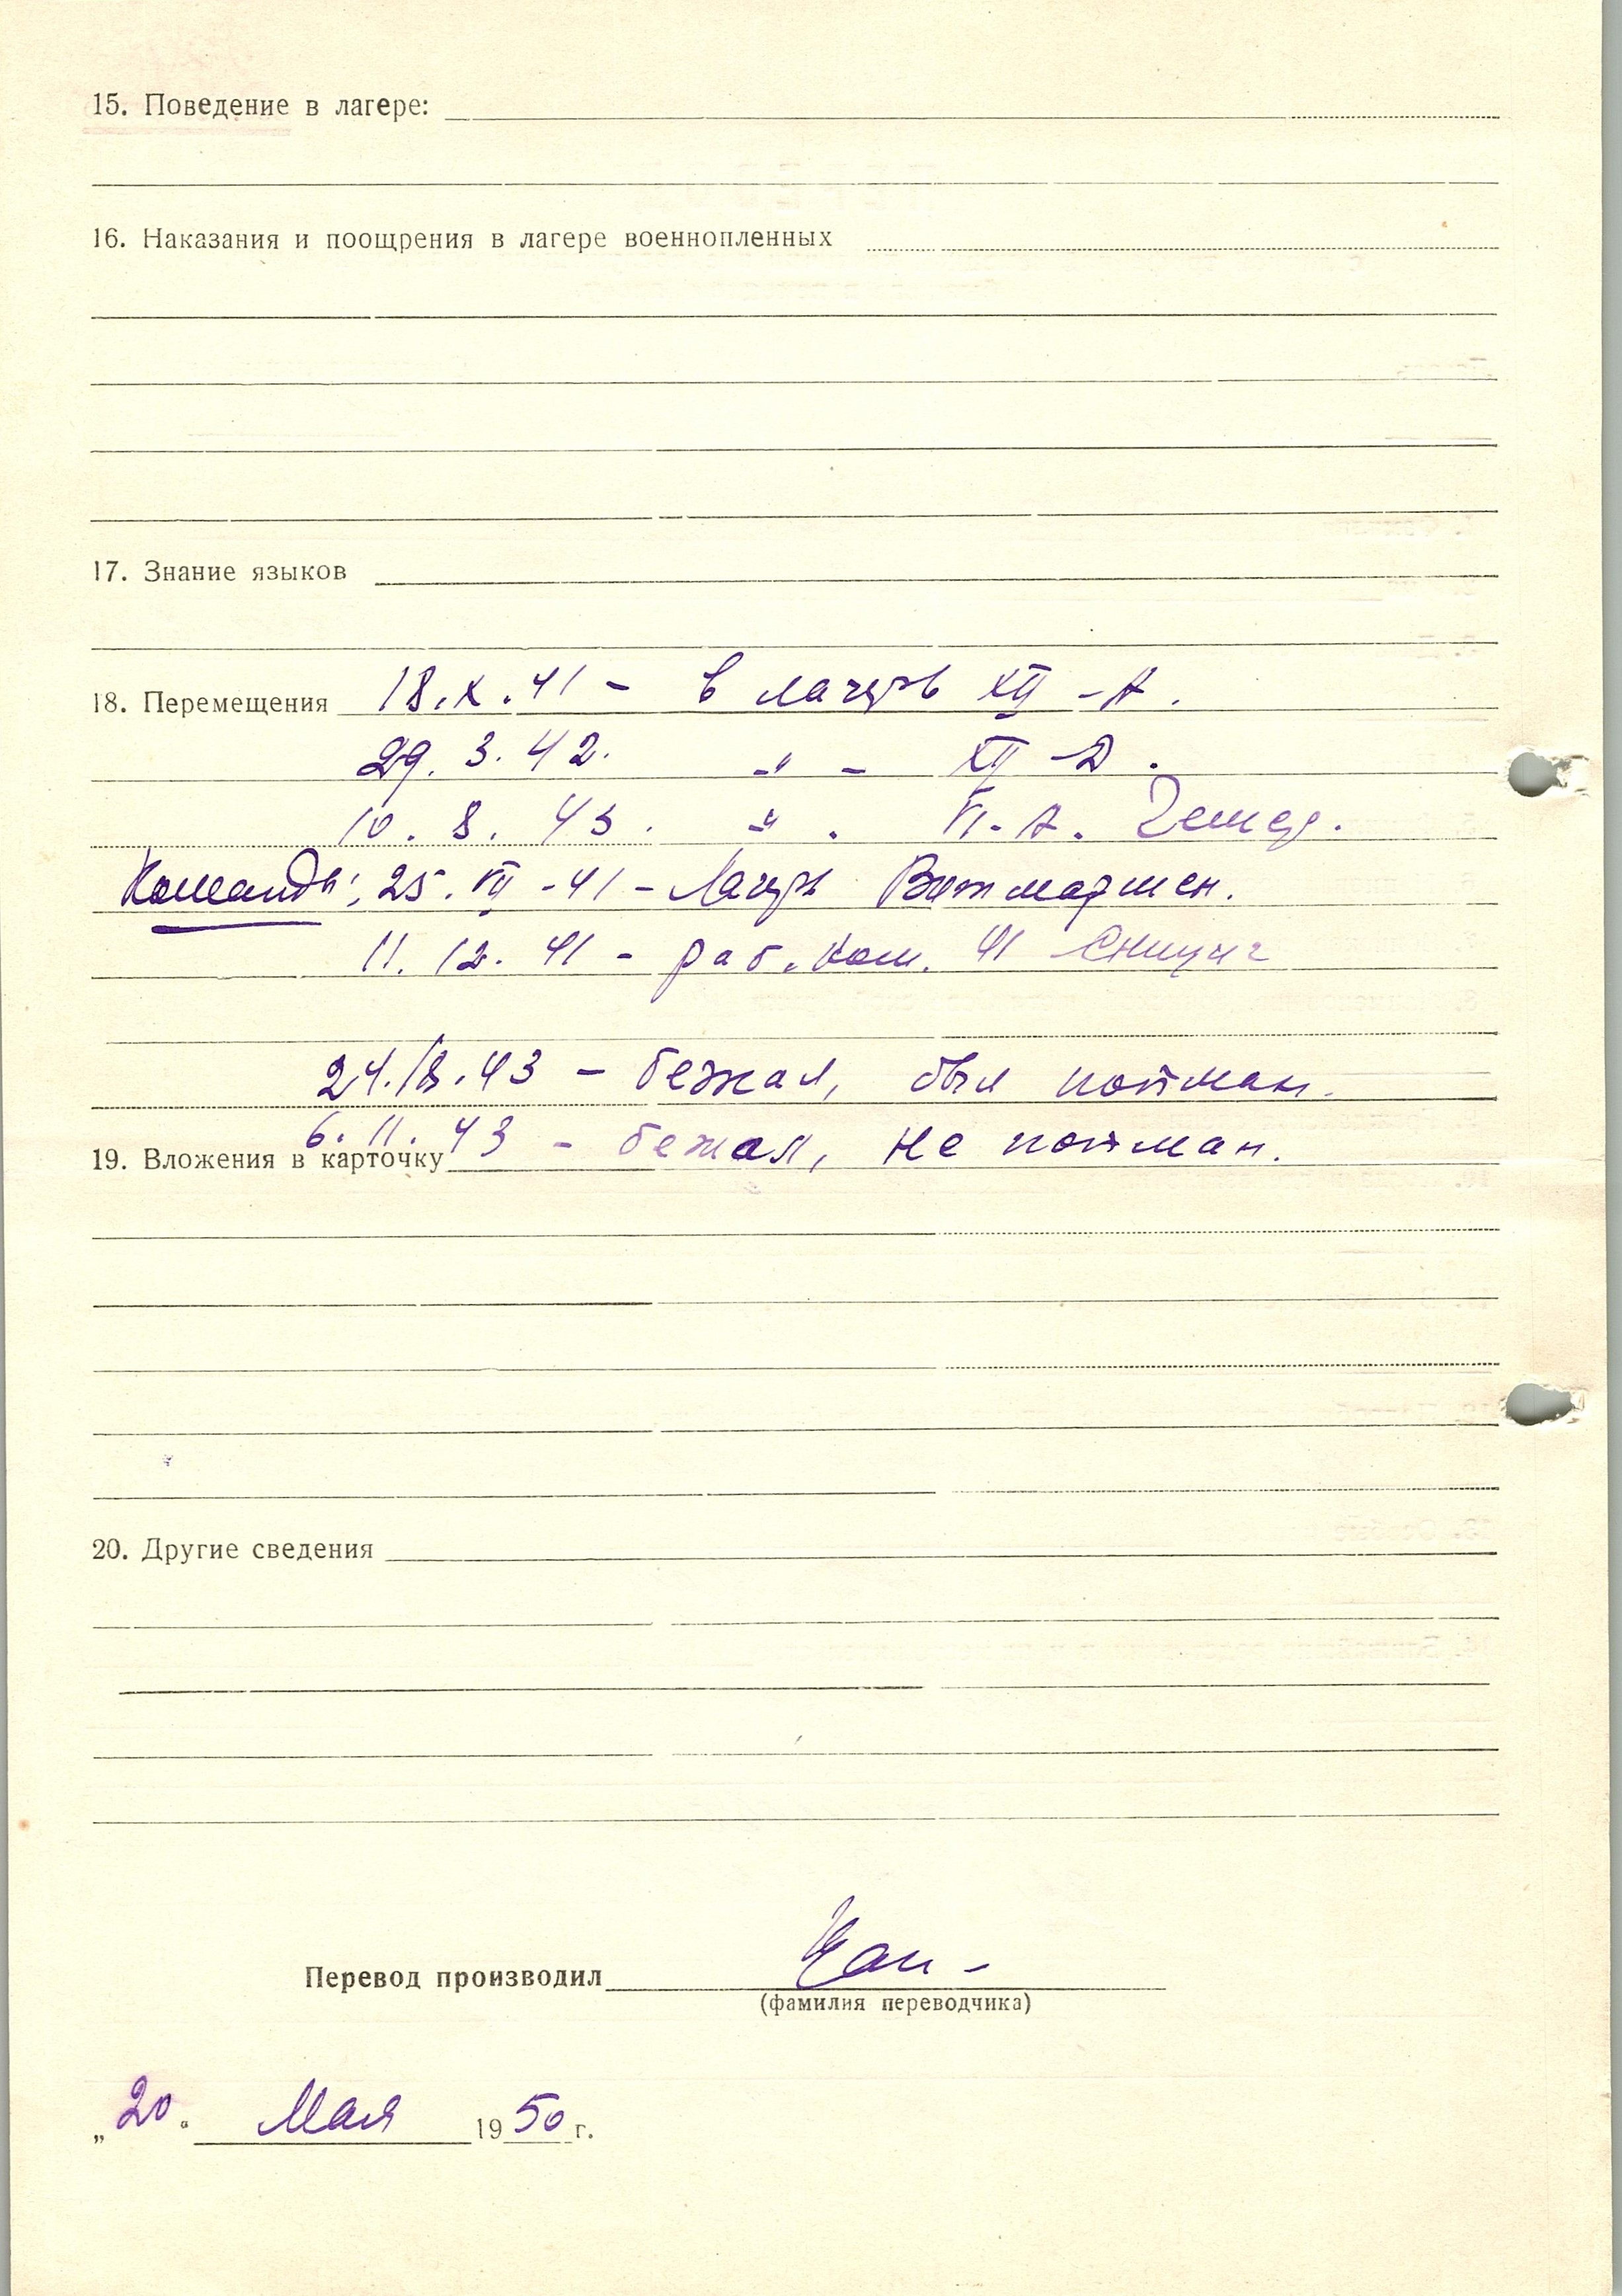 15. Поведение в лагере:
16. Наказания и поощрения в лагере военнопленных
17. Знание языков
18. Перемещения 18.X.41 - в лагерь XII - А.
29. 3. 42. -"- XII -D.
10. 8. 43. -"- VI - А. Гемер.
Команды: 25. VII -41 - Лагерь Витмаршен.
11. 12. 41 - раб. ком. 41
24./8.43 - бежал, был пойман.
6. 11. 43 - бежал, не пойман.
19. Вложения в карточку
20. Другие сведения
Перевод производил
(фамилия переводчика)
„20" Мая 1950 г.